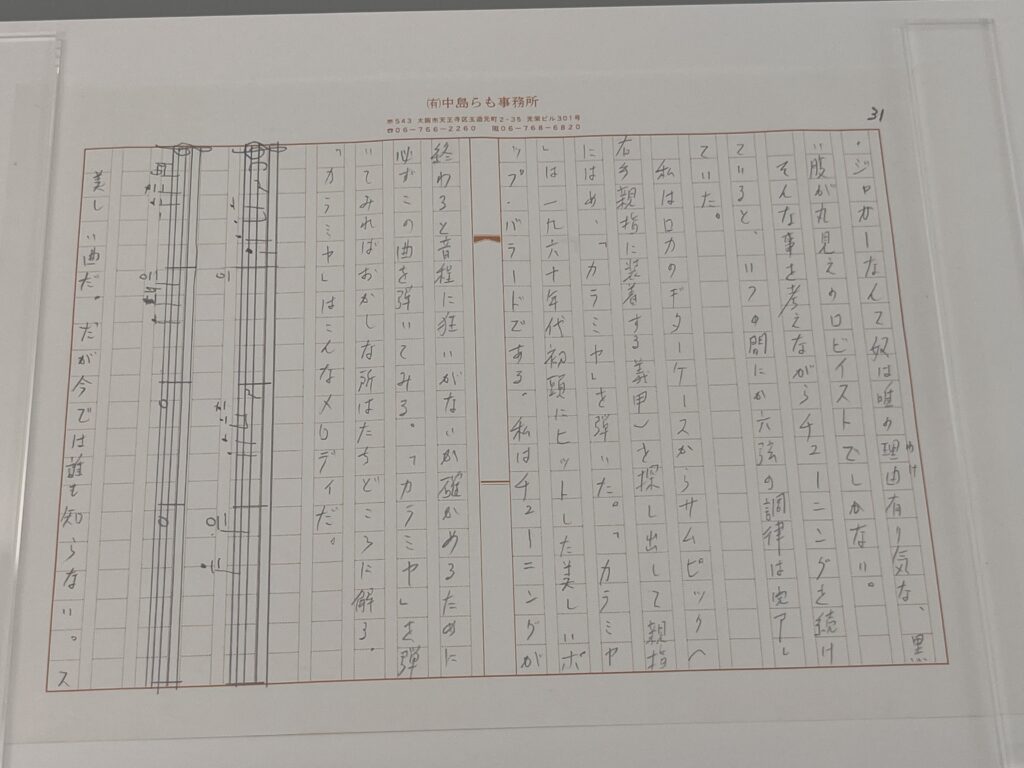 (有)中島らも事務所
〒543 大阪市天王寺区玉造元町2-35 光栄ビル301号
☎06-766-2260 06-768-6820
31
・ジロカーなんて奴は唯の理由有り気な、黒
わけ
い腹が丸見えのロビイストでしかない。
そんな事を考えながらチューニングを続け
ていると、いつの間にか六弦の調律は完了し
ていた。
私はロカのギターケースからサムピック(
右手親指に装着する義甲)を探し出して親指
にはめ、「カラミヤ」を弾いた。「カラミヤ
」は一九六十年代初頭にヒットした美しいポ
ップ・バラードである。私はチューニングが
終わると音程に狂いがないか確かめるために
必ずこの曲を弾いてみる。「カラミヤ」を弾
いてみればおかしな所はたちどころに解る。
「カラミヤ」はこんなメロディだ。
美しい曲だ。だが今では誰も知らない。ス